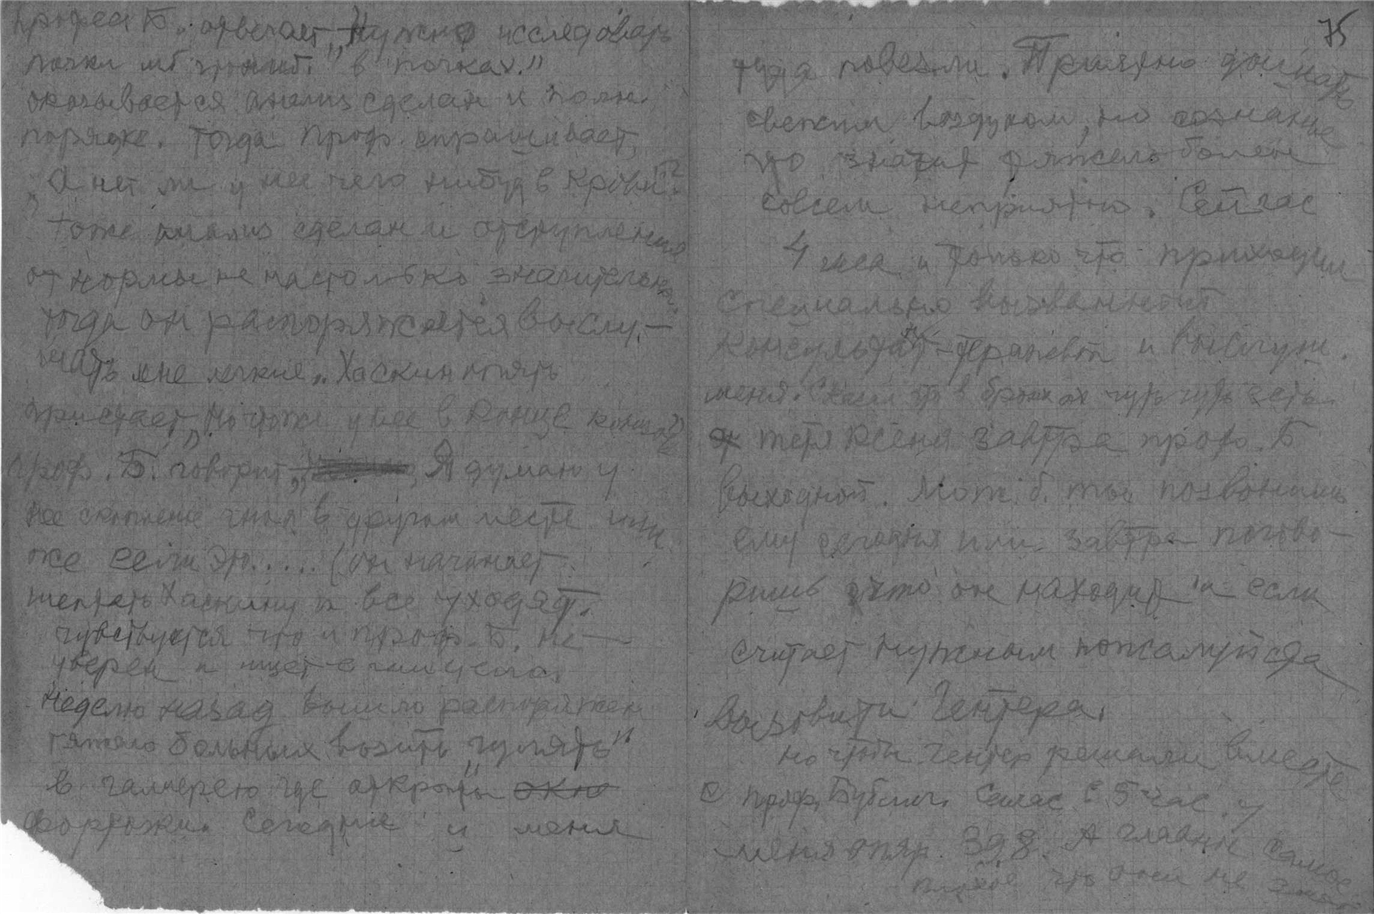 Професс Б. отвечает „Нужно исследовать
почки мб гной в почках."
оказывается анализ сделан и полн.
порядке. Тогда Проф. спрашивает,
„А нет ли у нее чего нибудь в крови?"
Тоже анализ сделан и отступления
от нормы не настолько значительны.
тогда он распоряжается выслу-
шать мне легкие. Хаскин опять
пристает, но что же у нее в конце концов?
проф. Б. говорит „ Я думаю у
нее скопление гноя в другом месте или
же если это..... (он начинает
шептать Хаскину и все уходят.
чувствуется что и проф. Б. не
уверен и ищет
неделю назад вышло распоряжен
тяжело больных возить „гулять"
в галлерею где открыты окно
форточки. Сегодня и меня
75
туда повезли. Приятно дышать
свежим воздухом, но сознание
что значит тяжело болен
совсем неприятно. Сейчас
4 часа и только что приходил
специально вызванный
консультант-терапевт и выслуш.
меня. Сказал что в бронхах чуть чуть есть.
тетя Ксеня завтра проф. Б
выходной. Мож. б. ты позвонишь
ему сегодня или завтра погово-
ришь что он находит и если
считает нужным пожалуйста
вызовите Гентера.
но чтобы Гентер решали вместе
с проф. Бубличен. Сейчас в 5 час. у
меня опять 39,8. А главное самое
плохое что они не знают